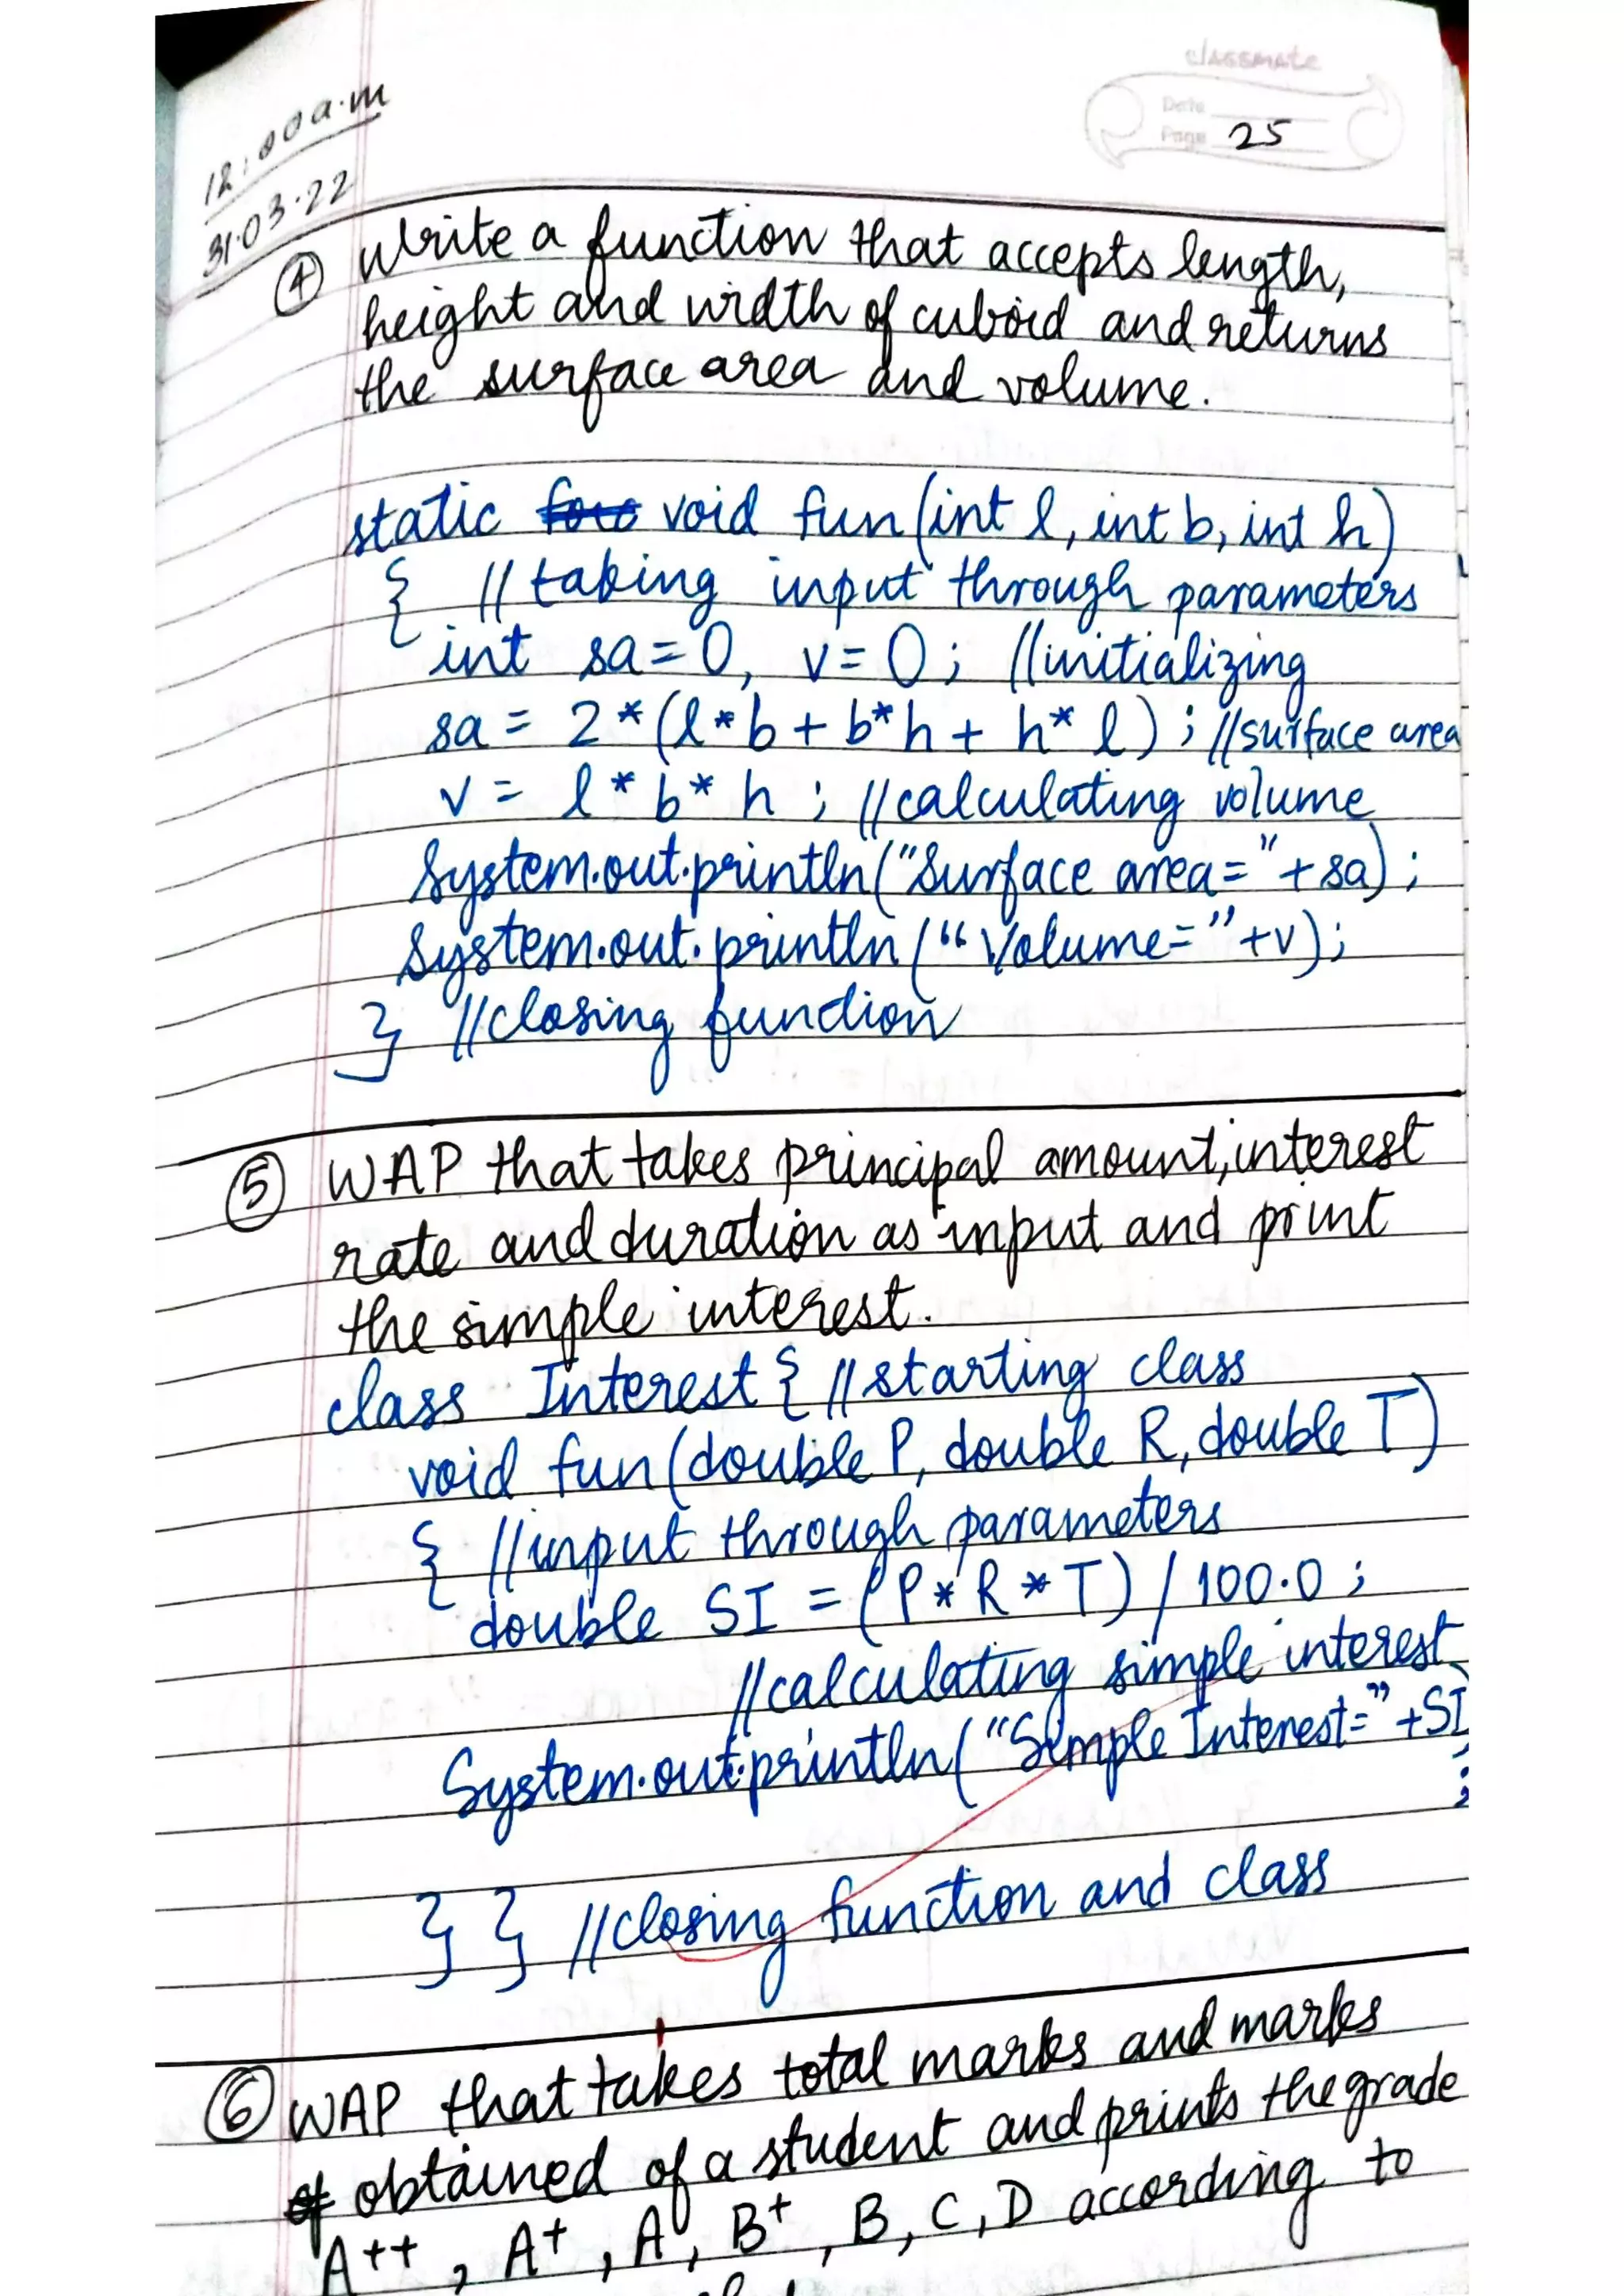 classmate
Date
Page 25
12:00 a.m
31.03.22
④ Write a function that accepts length,
height and width of cuboid and returns
the surface area and volume.
static void fun(int l, int b, int h)
{ // taking input through parameters
int sa=0, v=0; //initializing
sa = 2*(l*b + b*h + h*l); //surface area
v = l*b*h; //calculating volume
System.out.println("Surface area="+sa);
System.out.println("Volume="+v);
} //closing function
⑤ WAP that takes principal amount, interest
rate and duration as input and print
the simple interest.
class Interest { //starting class
void fun(double P, double R, double T)
{ //input through parameters
double SI = (P*R*T) / 100.0;
//calculating simple interest
System.out.println("Simple Interest="+SI)
;
} } //closing function and class
⑥ WAP that takes total marks and marks
obtained of a student and prints the grade
A++, A+, A, B+, B, C, D according to